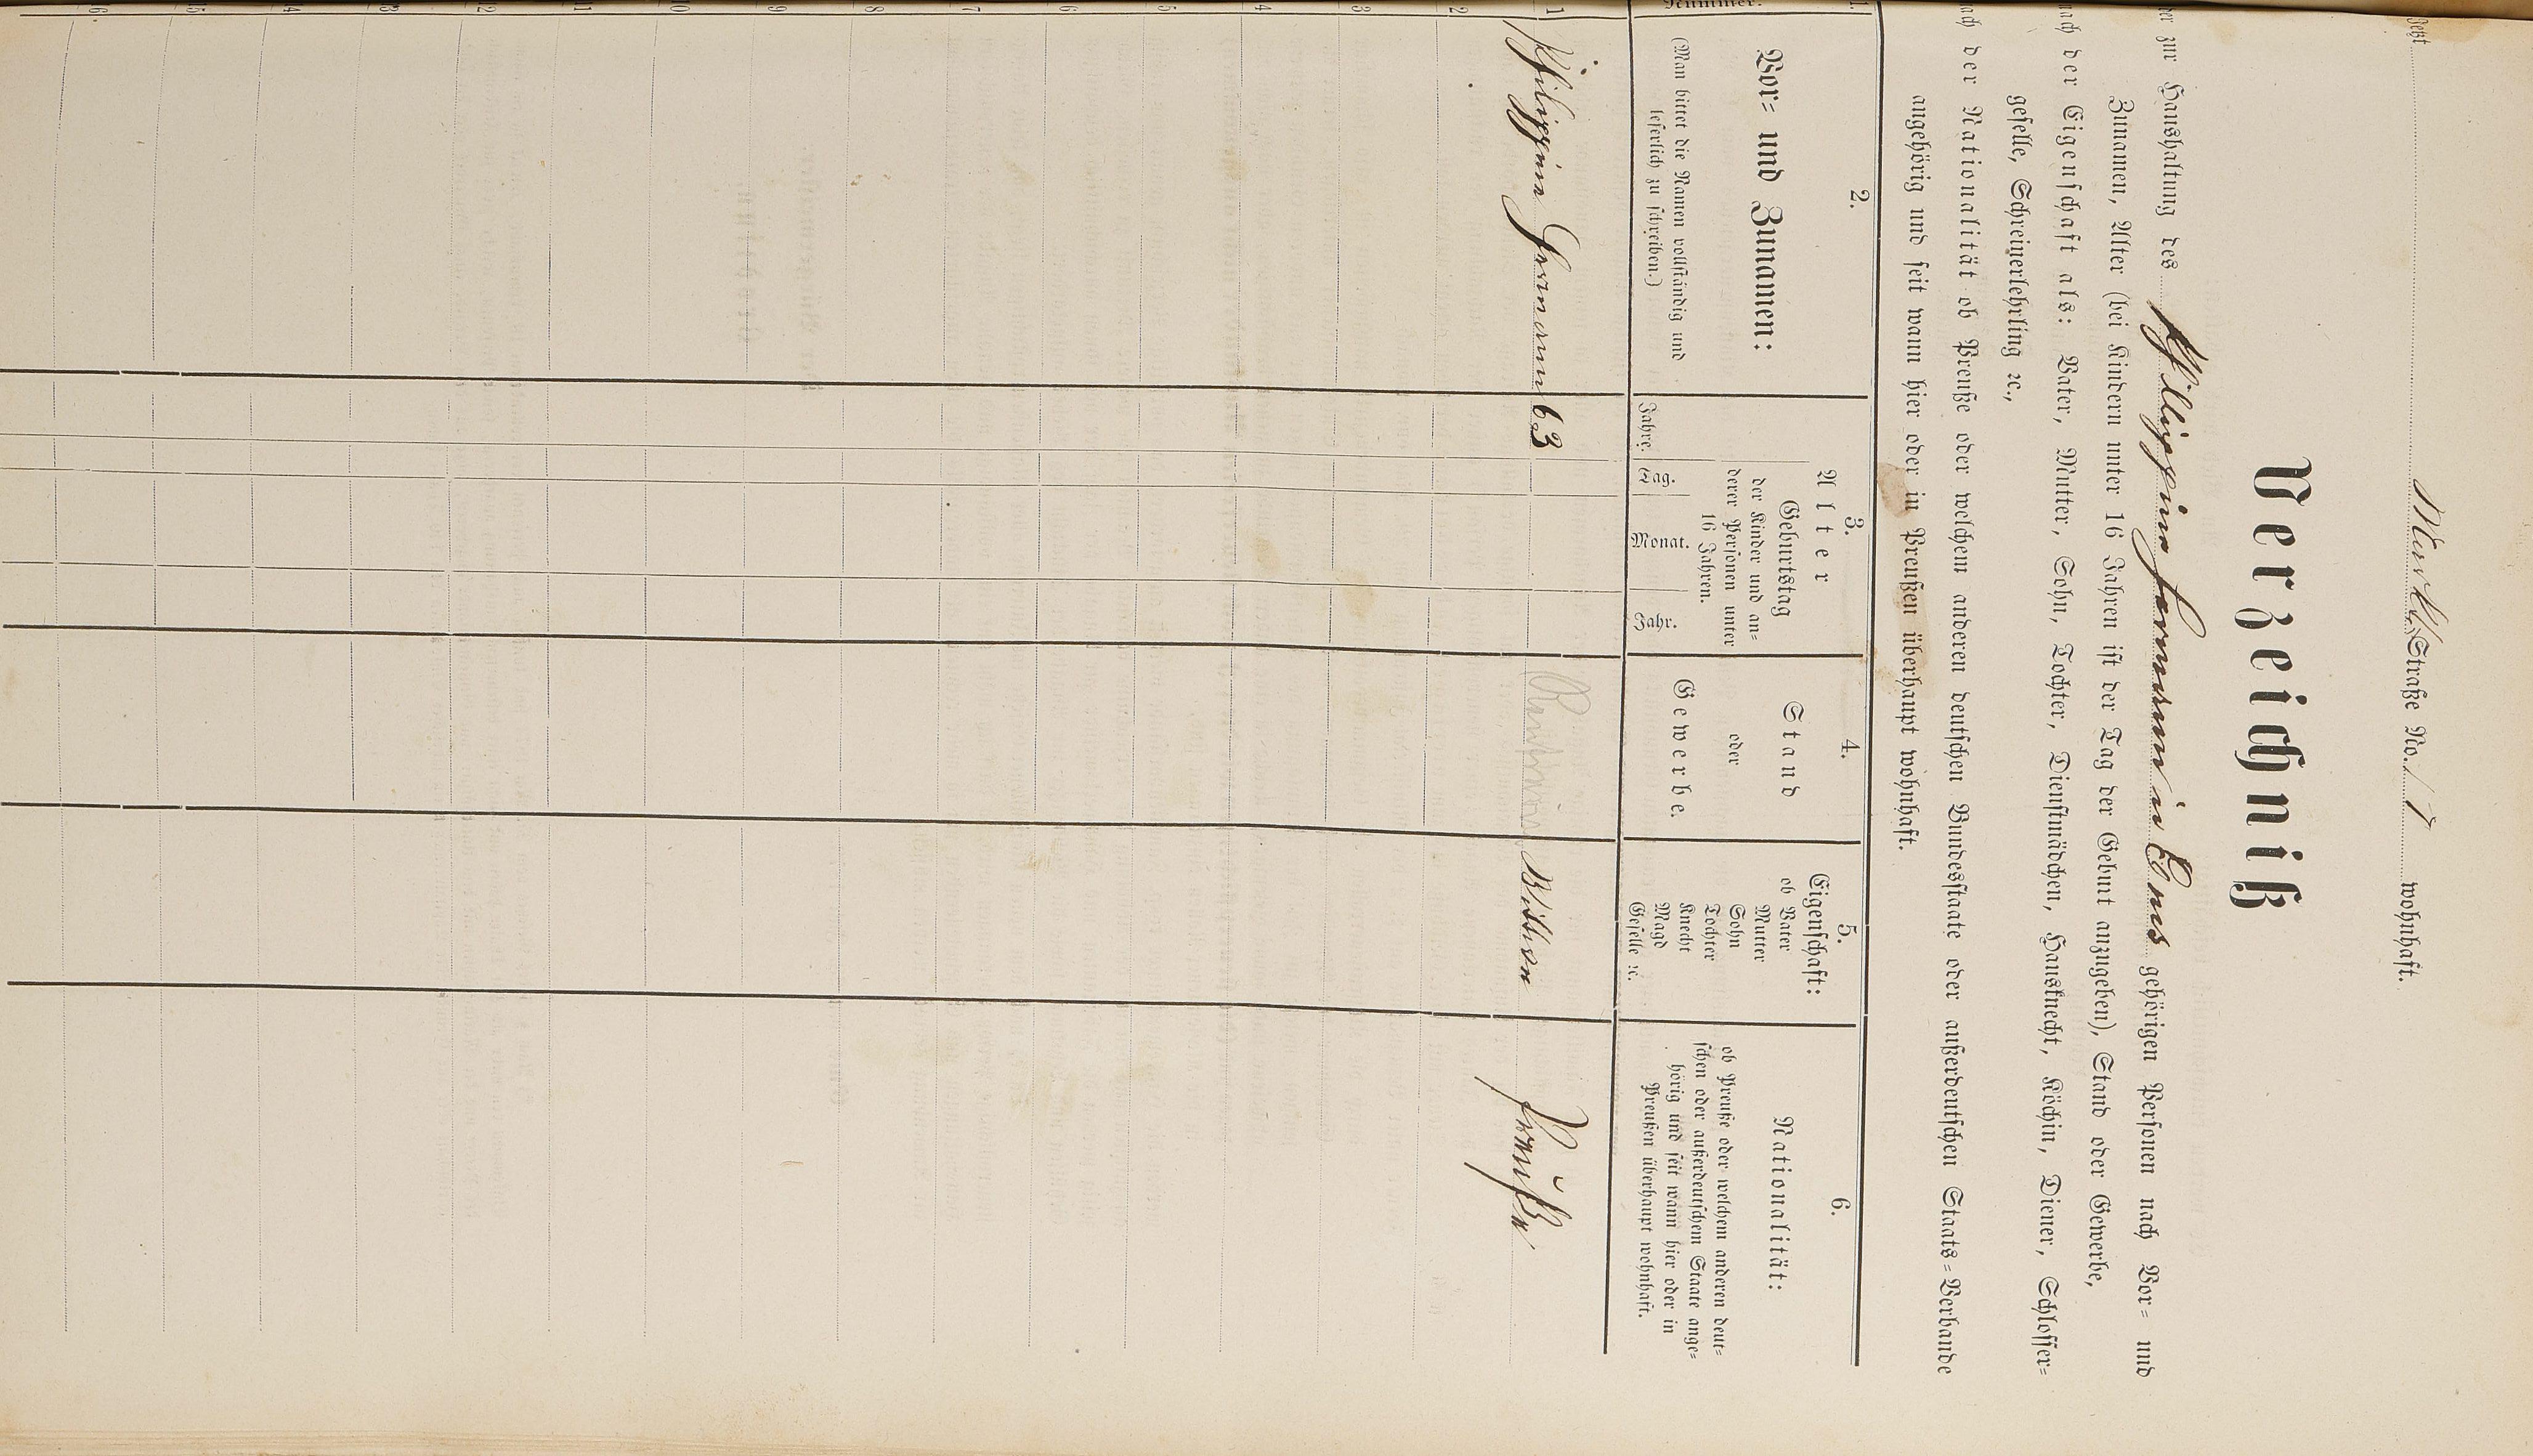 Jetzt Markt Straße No. 17 wohnhaft.
Verzeichniß
der zur Haushaltung des Philippine Herrmann in Ems gehörigen Personen nach Vor= und
Zunamen, Alter (bei Kindern unter 16 Jahren ist der Tag der Geburt anzugeben), Stand oder Gewerbe,
nach der Eigenschaft als: Vater, Mutter, Sohn, Tochter, Dienstmädchen, Hausknecht, Köchin, Diener, Schlosser=
geselle, Schreinerlehrling ꝛc.,
nach der Nationalität ob Preuße oder welchem anderen deutschen Bundesstaate oder außerdeutschen Staats=Verbande
angehörig und seit wann hier oder in Preußen überhaupt wohnhaft.
1. 2. 3. 4. 5. 6.
Nummer.
Vor= und Zunamen:
(Man bittet die Namen vollständig und
leserlich zu schreiben.)
Alter
Jahre.
Geburtstag
der Kinder und an=
derer Personen unter
16 Jahren.
Tag. Monat. Jahr.
Stand
oder
Gewerbe.
Eigenschaft:
ob Vater
Mutter
Sohn
Tochter
Knecht
Magd
Geselle ꝛc.
Nationalität:
ob Preuße oder welchem anderen deut=
schen oder außerdeutschem Staate ange=
hörig und seit wann hier oder in
Preußen überhaupt wohnhaft.
1 Philippine Herrmann 63 Rentnerin Preuße
2
3
4
5
6
7
8
9
10
11
12
13
14
15
16